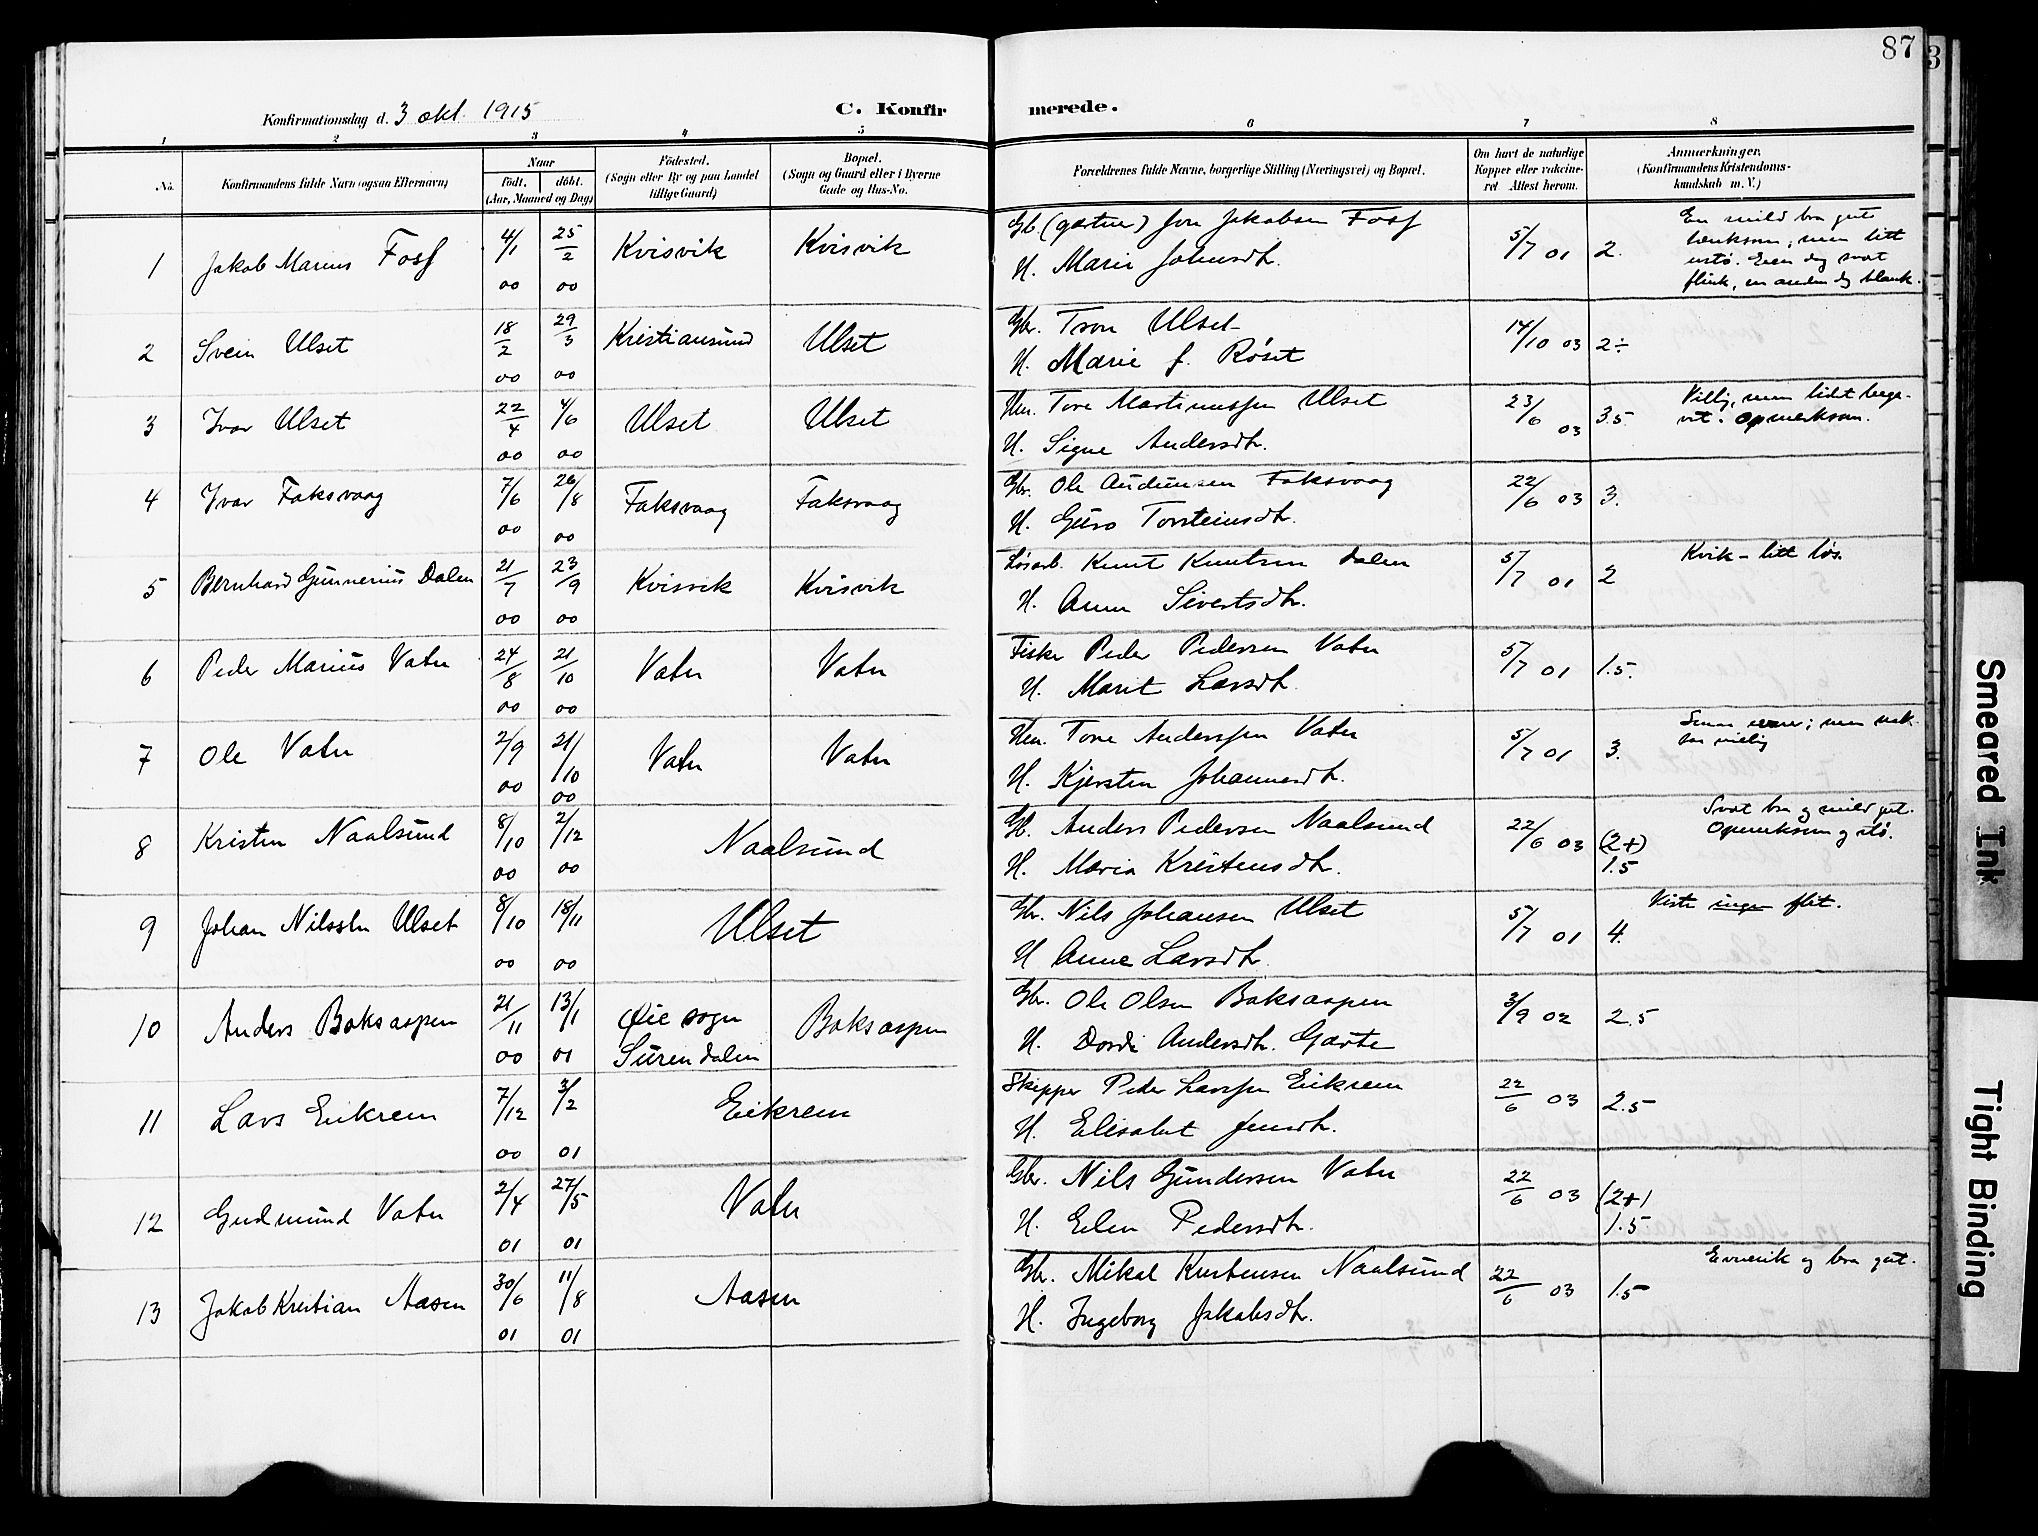 87
3
Konfirmationsdag d. 3 okt. 1915
C. Konfirmerede.
1 2 3 4 5 6 7 8
No.
Konfirmandens fulde Navn (ogsaa Efternavn)
Naar
födt. döbt.
(Aar, Maaned og Dag)
Födested.
(Sogn eller By og paa Landet
tillige Gaard)
Bopæl.
(Sogn og Gaard eller i Byerne
Gade og Hus-No.
Forældrenes fulde Navne, borgerlige Stilling (Næringsvei) og Bopæl.
Om havt de naturlige
Kopper eller vaccine-
ret Attest herom.
Anmærkninger.
(Konfirmandens Kristendoms-
kundskab m. V.)
1 Jakob Marius Foss 4/1 00 25/2 00 Kvisvik Kvisvik
Gb. (gartner) Jon Jakobsen Foss
H. Marie Johnsdt. 5/7 01 2.
En mild bra gut
tænksom, men litt
ustø. Een dag svat
flink, en anden dg blank.
2 Svein Ulset 18/2 00 29/3 00 Kristiansund Ulset
Gbr. Tron Ulset
H. Marie f. Røset 14/10 03 2÷
3 Ivar Ulset 22/4 00 4/6 00 Ulset Ulset
Hm. Tore Martinussen Ulset
H. Signe Andersdt. 23/6 03 3.5.
Villig, men lidt bega-
vet. Opmerksom.
4 Ivar Faksvaag 7/6 00 26/8 00 Faksvaag Faksvaag
Gbr. Ole Audunsen Faksvaag
H. Guro Torsteinsdt. 22/6 03 3.
5 Bernhard Gunnerius Dalen 21/7 00 23/9 00 Kvisvik Kvisvik
Løsarb. Knut Knutsen Dalen
H. Anne Sivertsdt. 5/7 01 2
Kvik – litt løs.
6 Peder Marius Vatn 24/8 00 21/10 00 Vatn Vatn
Fisker Peder Pedersen Vatn
H. Marit Larsdt. 5/7 01 1.5.
7 Ole Vatn 2/9 00 21/10 00 Vatn Vatn
Hm. Tore Anderssen Vatn
H. Kjersten Johannesdt. 5/7 01 3.
Smaa evner; men
villig
8 Kristen Naalsund 8/10 00 2/12 00 Naalsund
Gb. Anders Pedersen Naalsund
H. Maria Kristensdt. 22/6 03 (2+)
1.5
Svat bra og mild gut.
Opmerksom og stø.
9 Johan Nilssen Ulset 8/10 00 18/11 00 Ulset
Gbr. Nils Johansen Ulset
H Anne Larsdt. 5/7 01 4.
Viste ingen flit.
10 Anders Boksaspen 21/11 00 13/1 01 Øie sogn
Surendalen Boksaspen
Gbr. Ole Olsen Boksaspen
H. Dordi Andersdt. Garte 3/9 02 2.5
11 Lars Eikrem 7/12 00 3/2 01 Eikrem
Skipper Peder Larssen Eikrem
H. Elisabet Jensdt. 22/6 03 2.5
12 Gudmund Vatn 2/4 01 27/5 01 Vatn
Gbr. Nils Gundersen Vatn
H. Elen Pedersdt. 22/6 03 (2+)
1.5
13 Jakob Kristian Aasen 30/6 01 11/8 01 Aasen
Gbr. Mikal Kristensen Naalsund
H. Ingeborg Jakobsdt. 22/6 03 1.5
Evnerik og bra gut.
Smeared Ink
Tight Binding